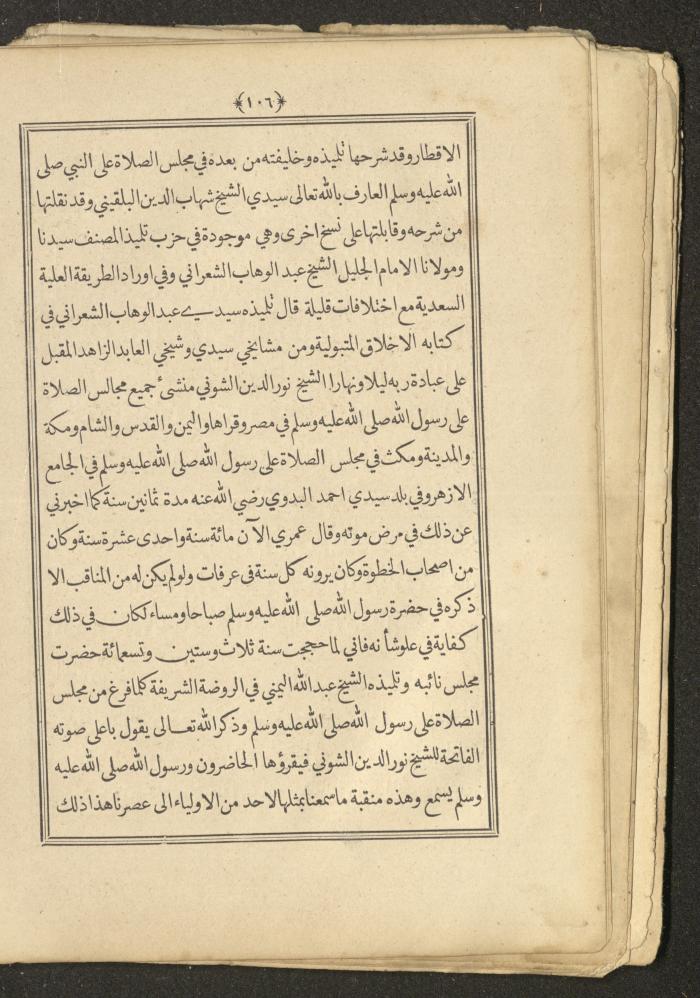 ﴿١٠٦﴾
الاقطار وقد شرحها تلميذه وخليفته من بعده في مجلس الصلاة على النبي صلى
الله عليه وسلم العارف بالله تعالى سيدي الشيخ شهاب الدين البلقيني وقد نقلتها
من شرحه وقابلتها على نسخ اخرى وهي موجودة في حزب تلميذ المصنف سيدنا
ومولانا الامام الجليل الشيخ عبد الوهاب الشعراني وفي اوراد الطريقة العلية
السعدية مع اختلافات قليلة قال تلميذه سيدي عبد الوهاب الشعراني في
كتابه الاخلاق المتبولية ومن مشايخي سيدي وشيخي العابد الزاهد المقبل
على عبادة ربه ليلا ونهارا الشيخ نور الدين الشوني منشئ جميع مجالس الصلاة
على رسول الله صلى الله عليه وسلم في مصر وقراها واليمن والقدس والشام ومكة
والمدينة ومكث في مجلس الصلاة على رسول الله صلى الله عليه وسلم في الجامع
الازهر وفي بلد سيدي احمد البدوي رضي الله عنه مدة ثمانين سنة كما اخبرني
عن ذلك في مرض موته وقال عمري الآن مائة سنة واحدى عشرة سنة وكان
من اصحاب الخطوة وكان يرونه كل سنة في عرفات ولو لم يكن له من المناقب الا
ذكره في حضرة رسول الله صلى الله عليه وسلم صباحا ومساء لكان في ذلك
كفاية في علو شأنه فاني لما حججت سنة ثلاث وستين وتسعمائة حضرت
مجلس نائبه وتلميذه الشيخ عبد الله اليمني في الروضة الشريفة كلما فرغ من مجلس
الصلاة على رسول الله صلى الله عليه وسلم وذكر الله تعالى يقول باعلى صوته
الفاتحة للشيخ نور الدين الشوني فيقرؤها الحاضرون ورسول الله صلى الله عليه
وسلم يسمع وهذه منقبة ما سمعنا بمثلها لاحد من الاولياء الى عصرنا هذا ذلك